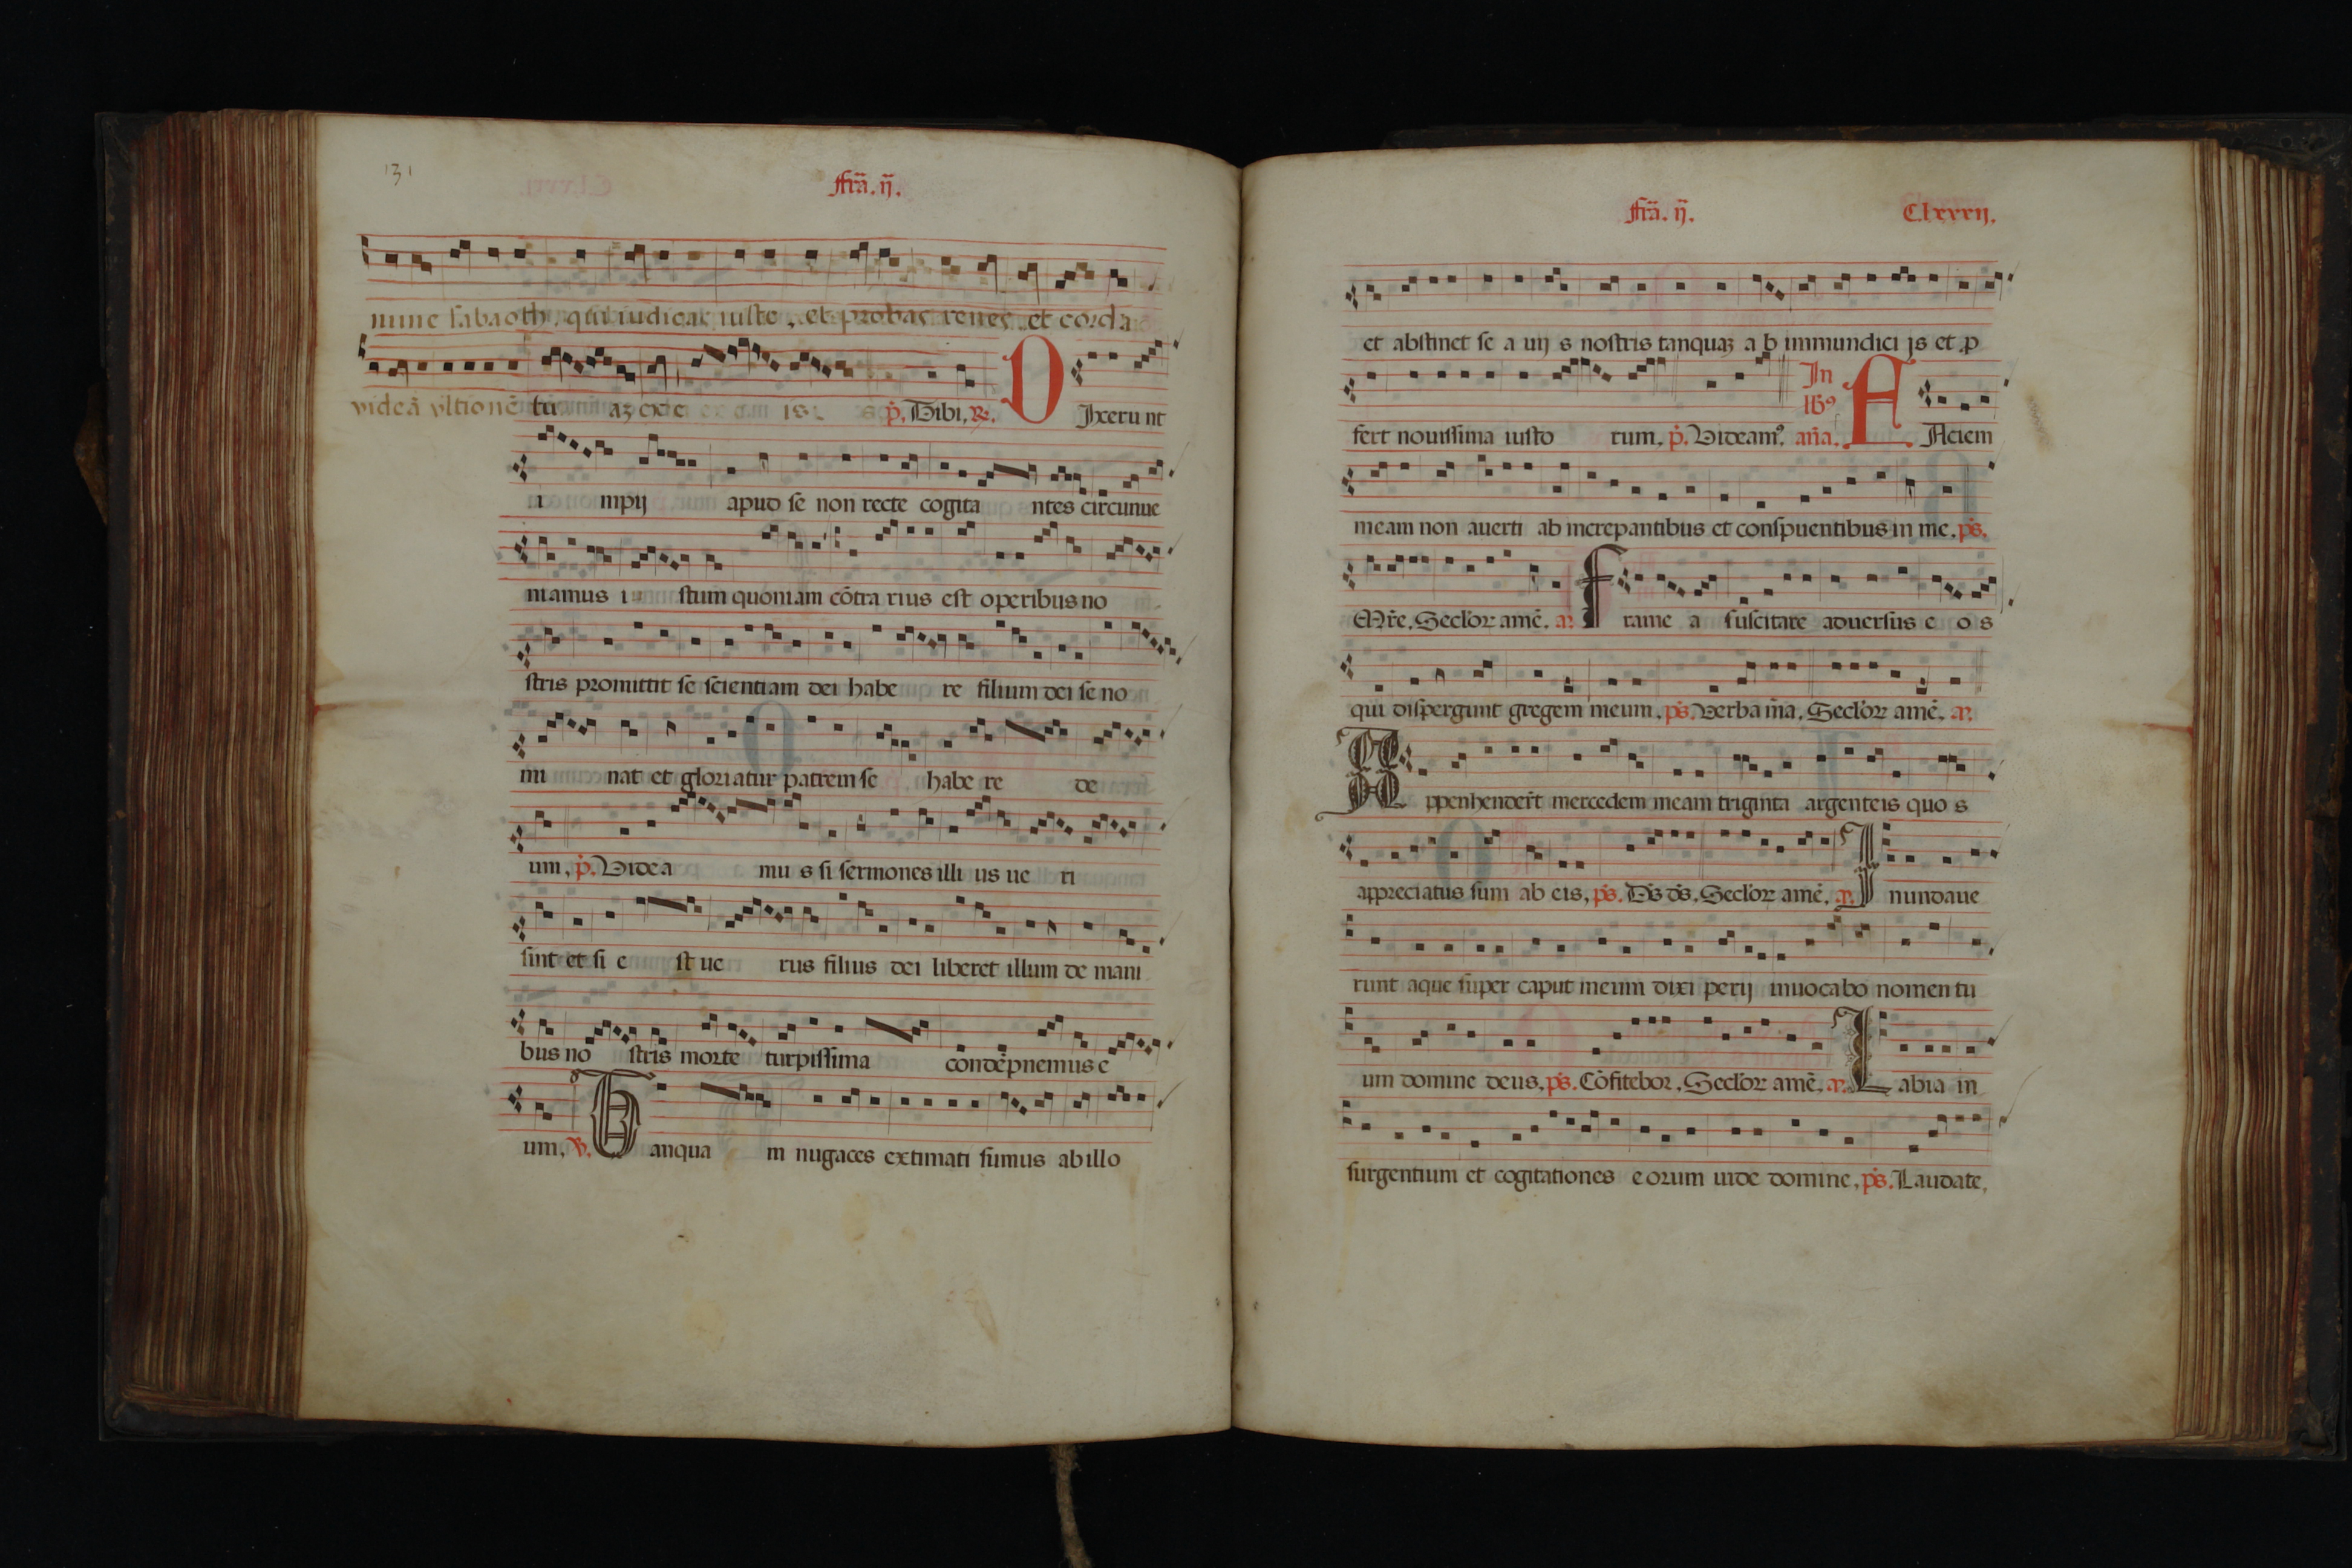 131
ffrā. ij.
nune sabaoth. qui iudicas iuste, et probas renes et corda
videā vltionē tu az ex e is. p̄. Tibi. R.
D Ixeru nt
i mpij apud se non recte cogita ntes circunue
niamus i stum quoniam cōtra rius est operibus no
stris promittit se scientiam dei habe re filium dei se no
mi nat et gloriatur patrem se habe re de
um. p̄. Videa mu s si sermones illi us ue ri
sint et si e st ue rus filius dei liberet illum de mani
bus no stris morte turpissima condēpnemus e
um. V. Tanqua m nugaces extimati sumus ab illo
ffrā. ij. Clxxxij.
et abstinet se a uij s nostris tanquaz a b immundici js et p
fert nouissima iusto rum. p̄. Videam9. In lb9 an̄a. F Aciem
meam non auerti ab increpantibus et conspuentibus in me. ps.
Mr̄e. Secl'or amē. a. f rame a suscitare aduersus e o s
qui dispergunt gregem meum. ps. Verba m̄a. Secl'or amē. a.
A ppenhender̄t mercedem meam triginta argenteis quo s
appreciatus sum ab eis. ps. Ds ds. Secl'or amē. a. I nundaue
runt aque super caput meum dixi perij inuocabo nomen tu
um domine deus. ps. Cōfitebor. Secl'or amē. a. L abia in
surgentium et cogitationes eorum uide domine. ps. Laudate.